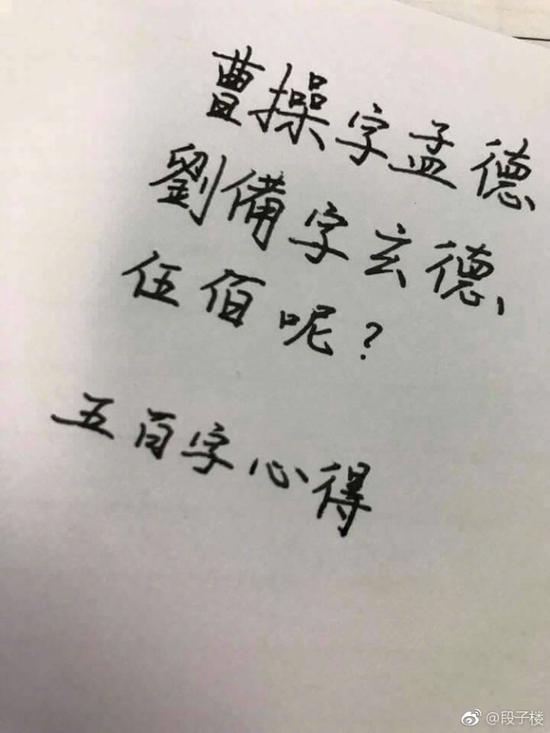 曹操字孟德
劉備字玄德
伍佰呢?
五百字心得
@段子楼